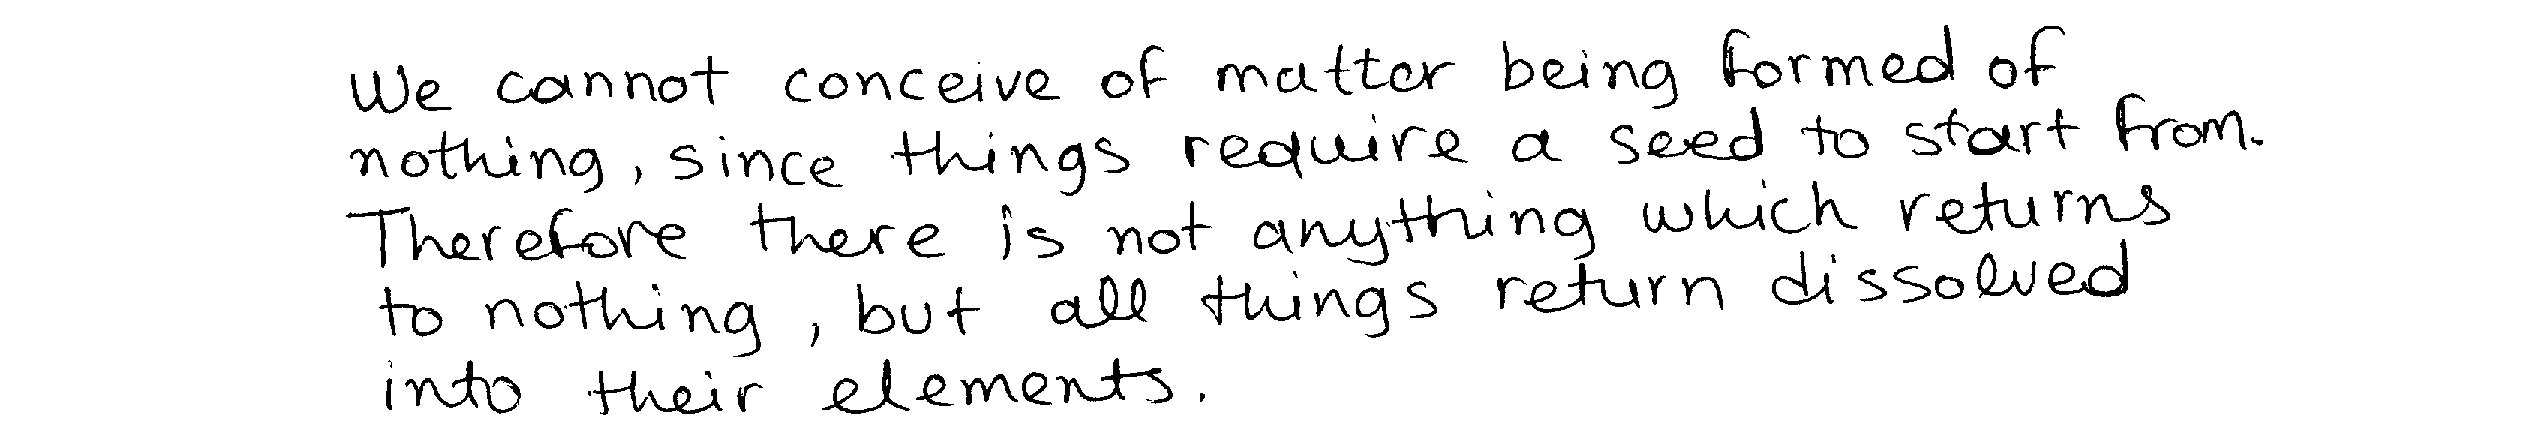 We cannot conceive of matter being formed of
nothing, since things require a seed to start from.
Therefore there is not anything which returns
to nothing, but all things return dissolved
into their elements.